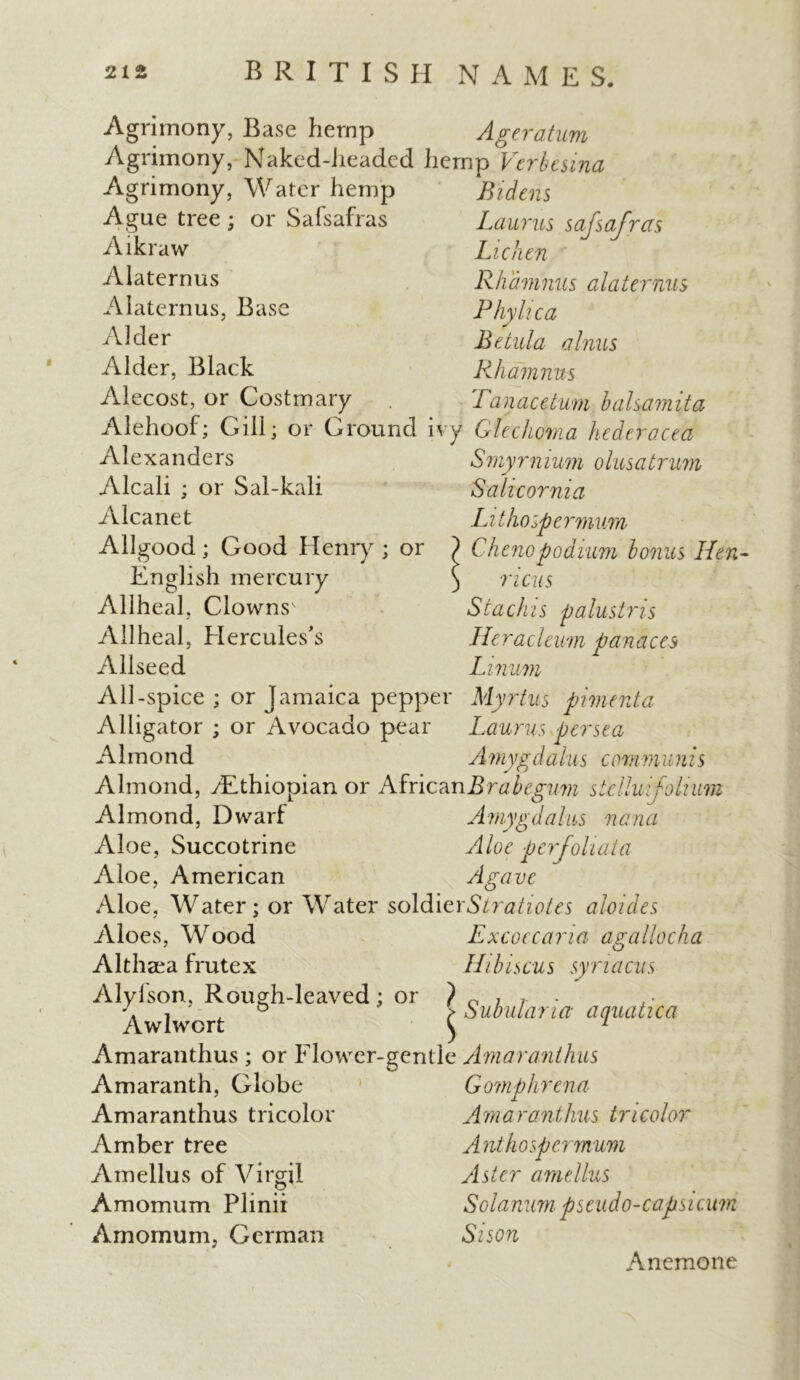 212 BRITISH NAMES.
Agrimony, Base hemp Ageratum
Agrimony, Naked-headed hemp Verbesina
Agrimony, Water hemp Bidens
Ague tree; or Safsafras Laurus safsafras
Aikraw Lichen
Alaternus Rhamnus alaternus
Alaternus, Base Phylica
Alder Betula alnus
Alder, Black Rhamnus
Alecost, or Costmary Tanacetum balsamita
Alehoof; Gill; or Ground ivy Glechoma hederacea
Alexanders Smyrnium olusatrum
Alcali ; or Sal-kali Salicornia
Alcanet Lithospermum
Allgood; Good Henry; or } Chenopodium bonus Hen-
English mercury } ricus
Allheal, Clowns' Stachis palustris
Allheal, Hercules's Heracleum panaces
Allseed Linum
All-spice ; or Jamaica pepper Myrtus pimenta
Alligator ; or Avocado pear Laurus persea
Almond Amygdalus communis
Almond, Æthiopian or African Brabegum stelluifolium
Almond, Dwarf Amygdalus nana
Aloe, Succotrine Aloe perfoliata
Aloe, American Agave
Aloe, Water; or Water soldier Stratiotes aloides
Aloes, Wood Excoecaria agallocha
Althæa frutex Hibiscus syriacus
Alyfson, Rough-leaved; or }
Awlwort } Subularia aquatica
Amaranthus; or Flower-gentle Amaranthus
Amaranth, Globe Gomphrena
Amaranthus tricolor Amaranthus tricolor
Amber tree Anthospermum
Amellus of Virgil Aster amellus
Amomum Plinii Solanum pseudo-capsicum
Amomum, German Sison
Anemone